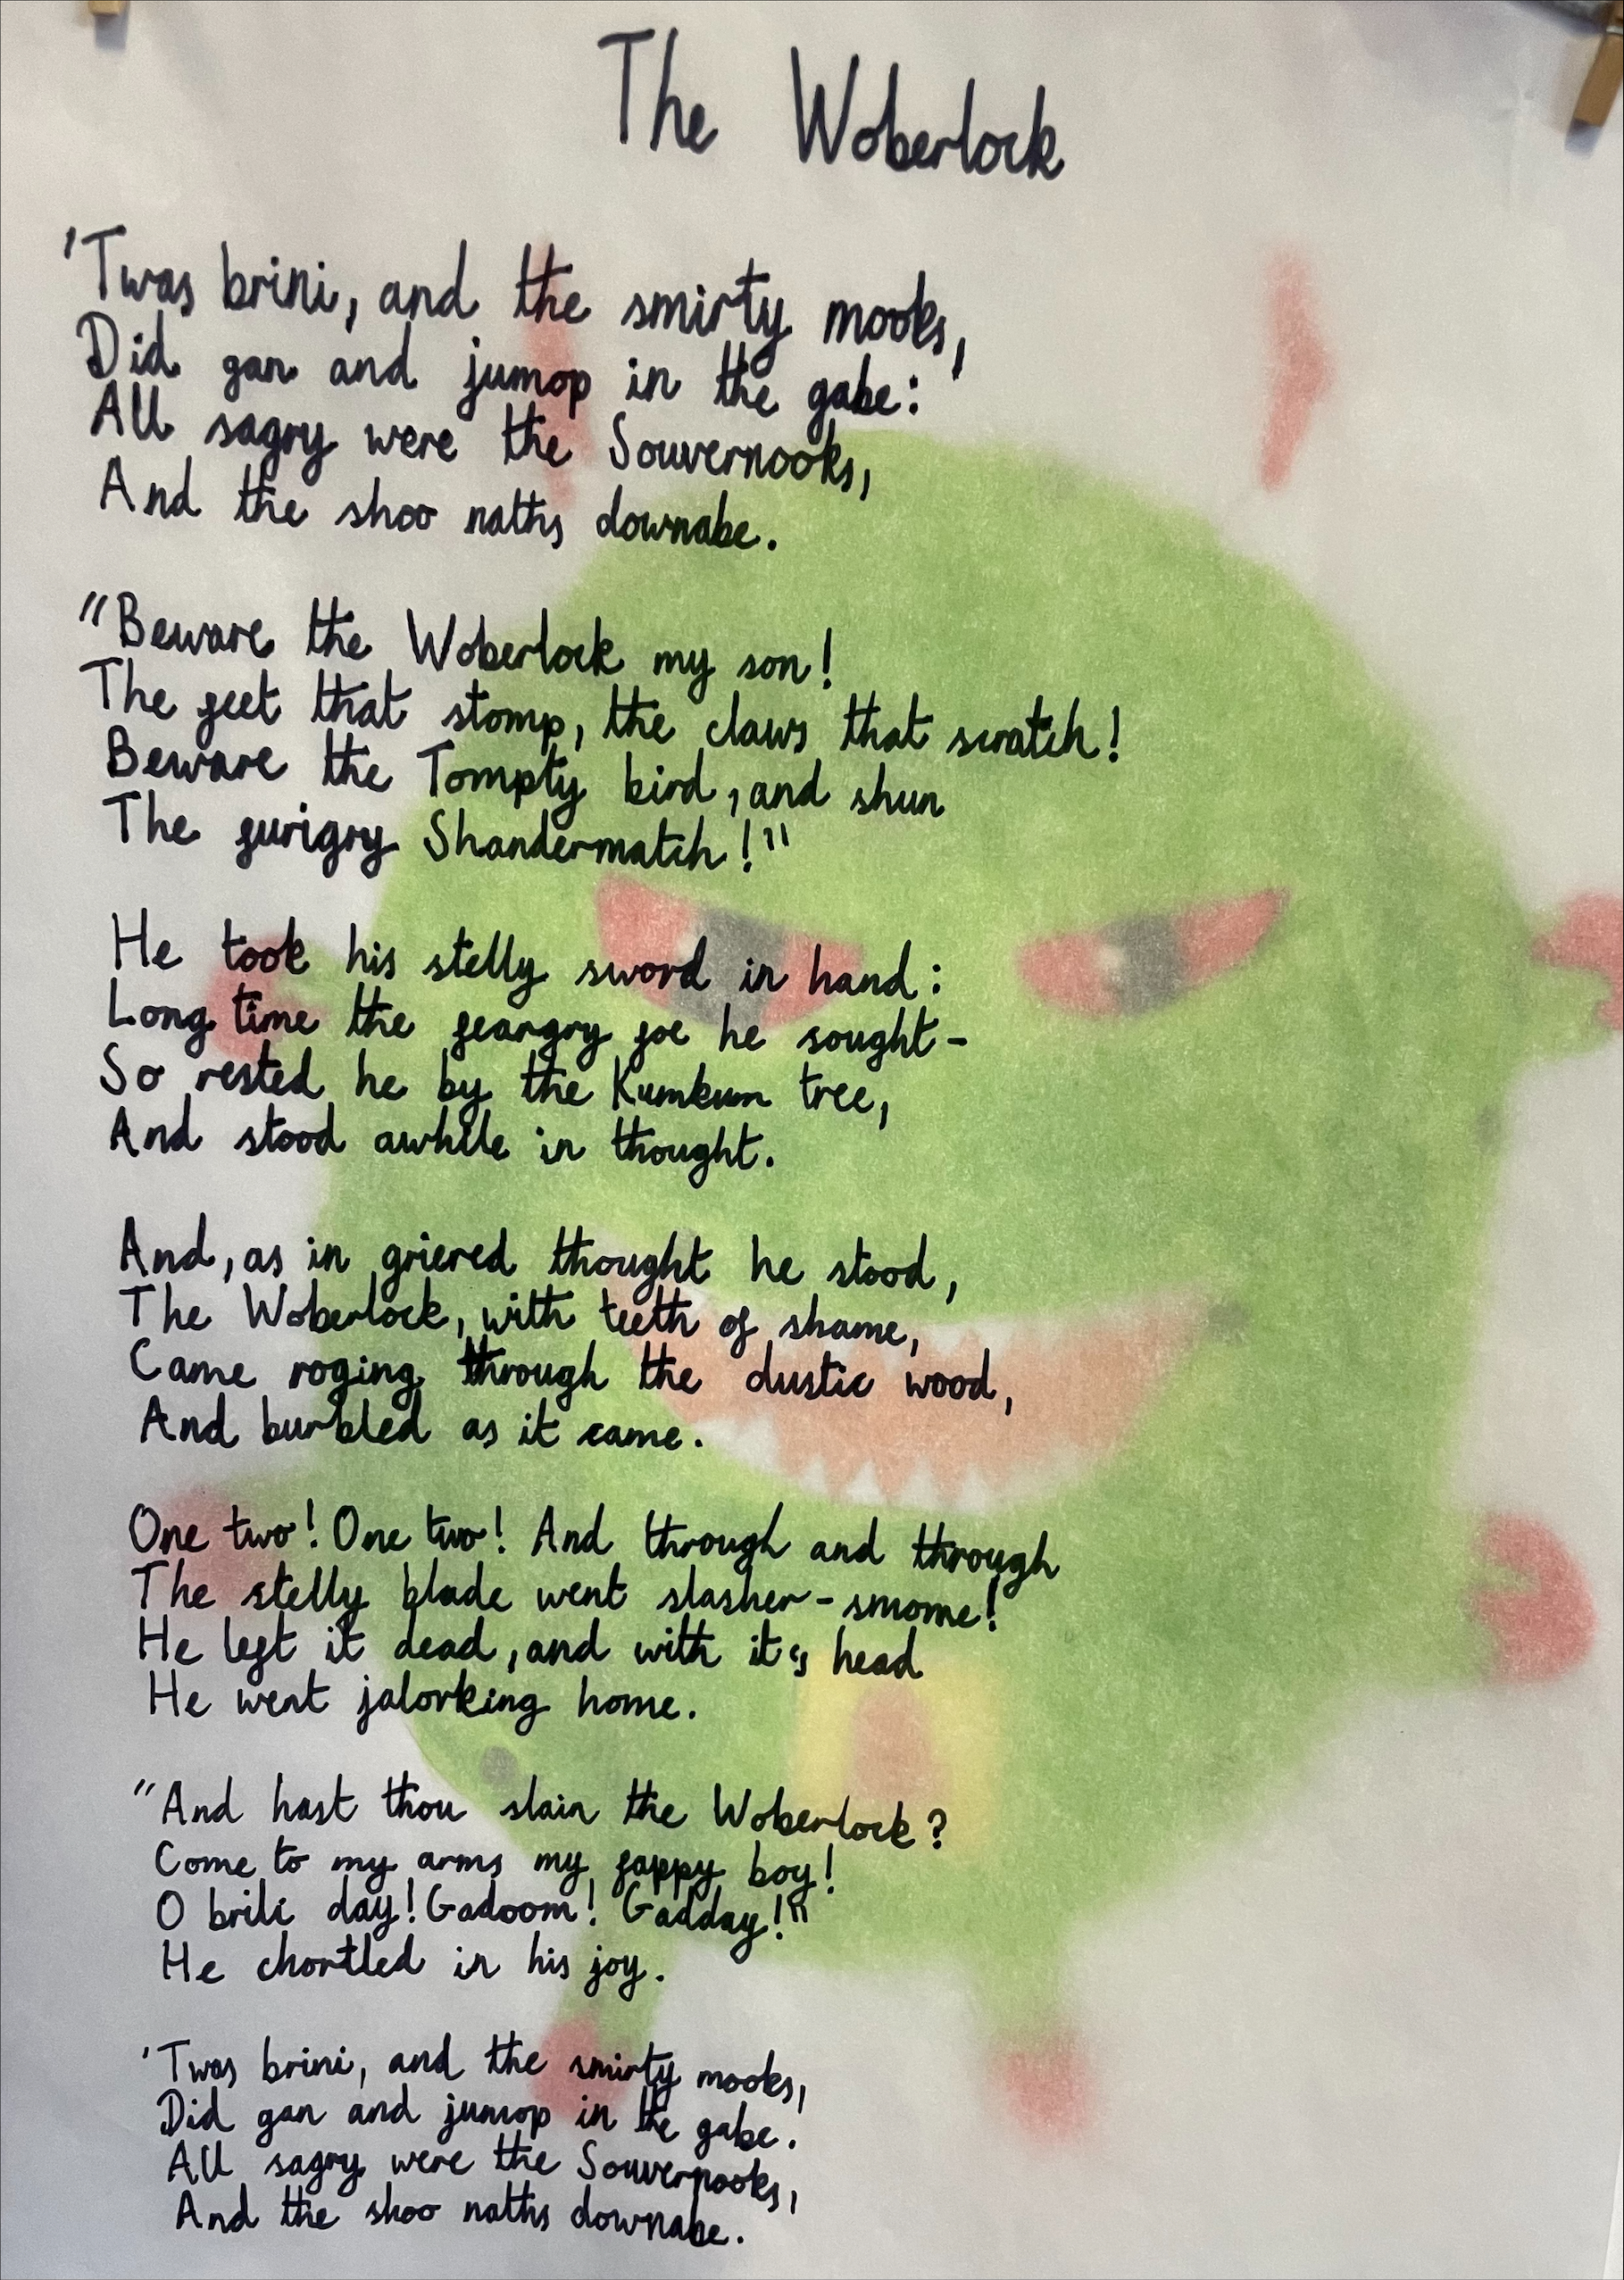 The Woberlock
'Twas brini, and the smirty mooks,
Did gan and jumop in the gabe:
All sagry were the Souvernooks,
And the shoo naths downabe.
"Beware the Woberlock my son!
The feet that stomp, the claws that scratch!
Beware the Tompty bird, and shun
The furigry Shandermatch!"
He took his stelly sword in hand:
Long time the feargry foe he sought-
So rested he by the Kumkum tree,
And stood awhile in thought.
And, as in griered thought he stood,
The Woberlock, with teeth of shame,
Came roging through the dustic wood,
And burbled as it came.
One two! One two! And through and through
The stelly blade went slasher-smome!
He left it dead, and with it's head
He went jalorking home.
"And hast thou slain the Woberlock?
Come to my arms my fappy boy!
O brili day! Gadoom! Gadday!"
He chortled in his joy.
'Twas brini, and the smirty mooks,
Did gan and jumop in the gabe.
All sagry were the Souvernooks,
And the shoo naths downabe.